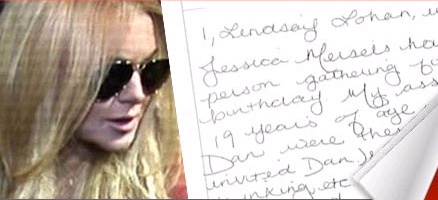 1, Lindsay Lohan,
Jessica Meisels ha
person gathering fo
birthday My ass
19 years of age
Dan were ther
invited Dan Je
inking etc